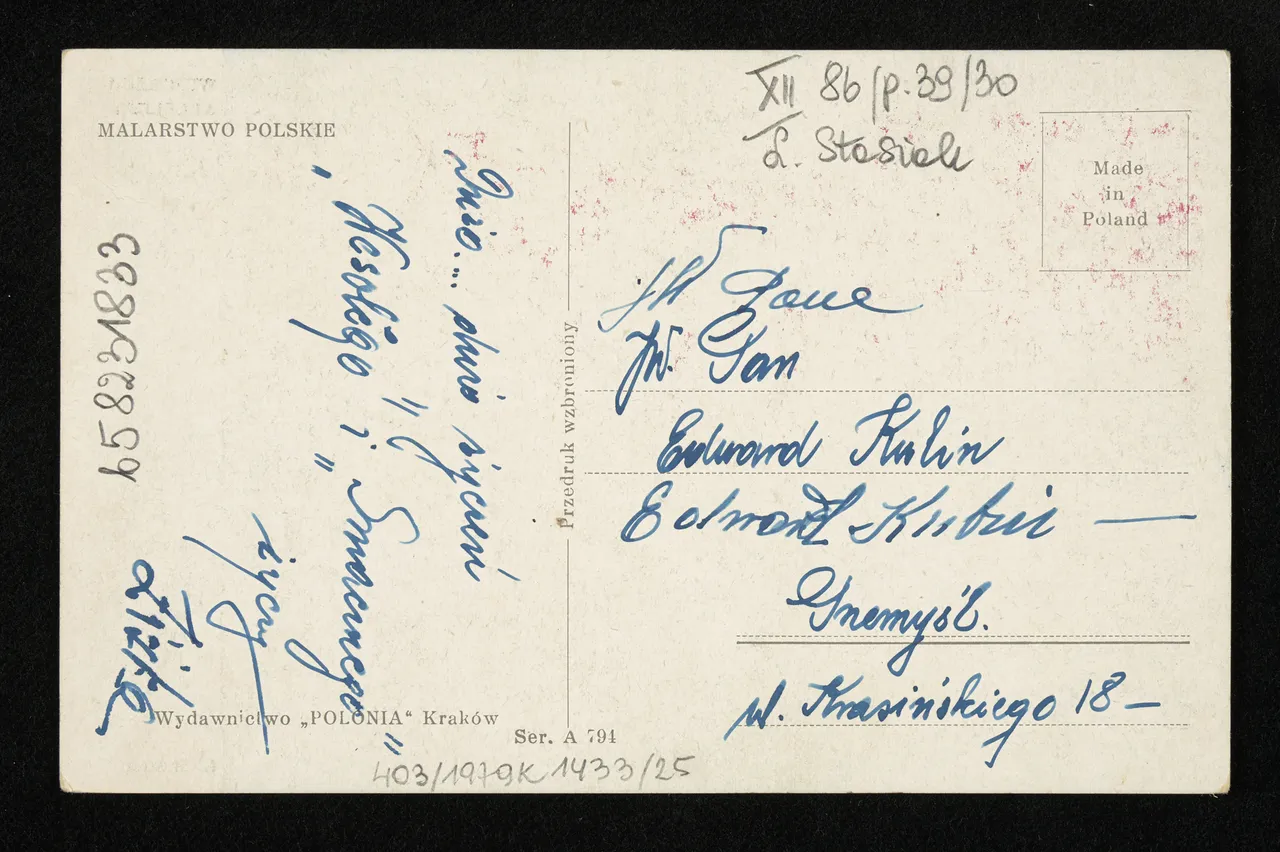 MALARSTWO POLSKIE
XII 86/p.39/30
L. Stasiak
Made
in
Poland
życzeń
„Wesołego” i „Smacznego”
życzy
Przedruk wzbroniony
JW Pan
JW. Pan
Edward Kubin
Edward Kubin —
Przemyśl.
ul. Krasińskiego 18 —
Wydawnictwo „POLONIA“ Kraków
Ser. A 794
403/1979K 1433/25
b58231833